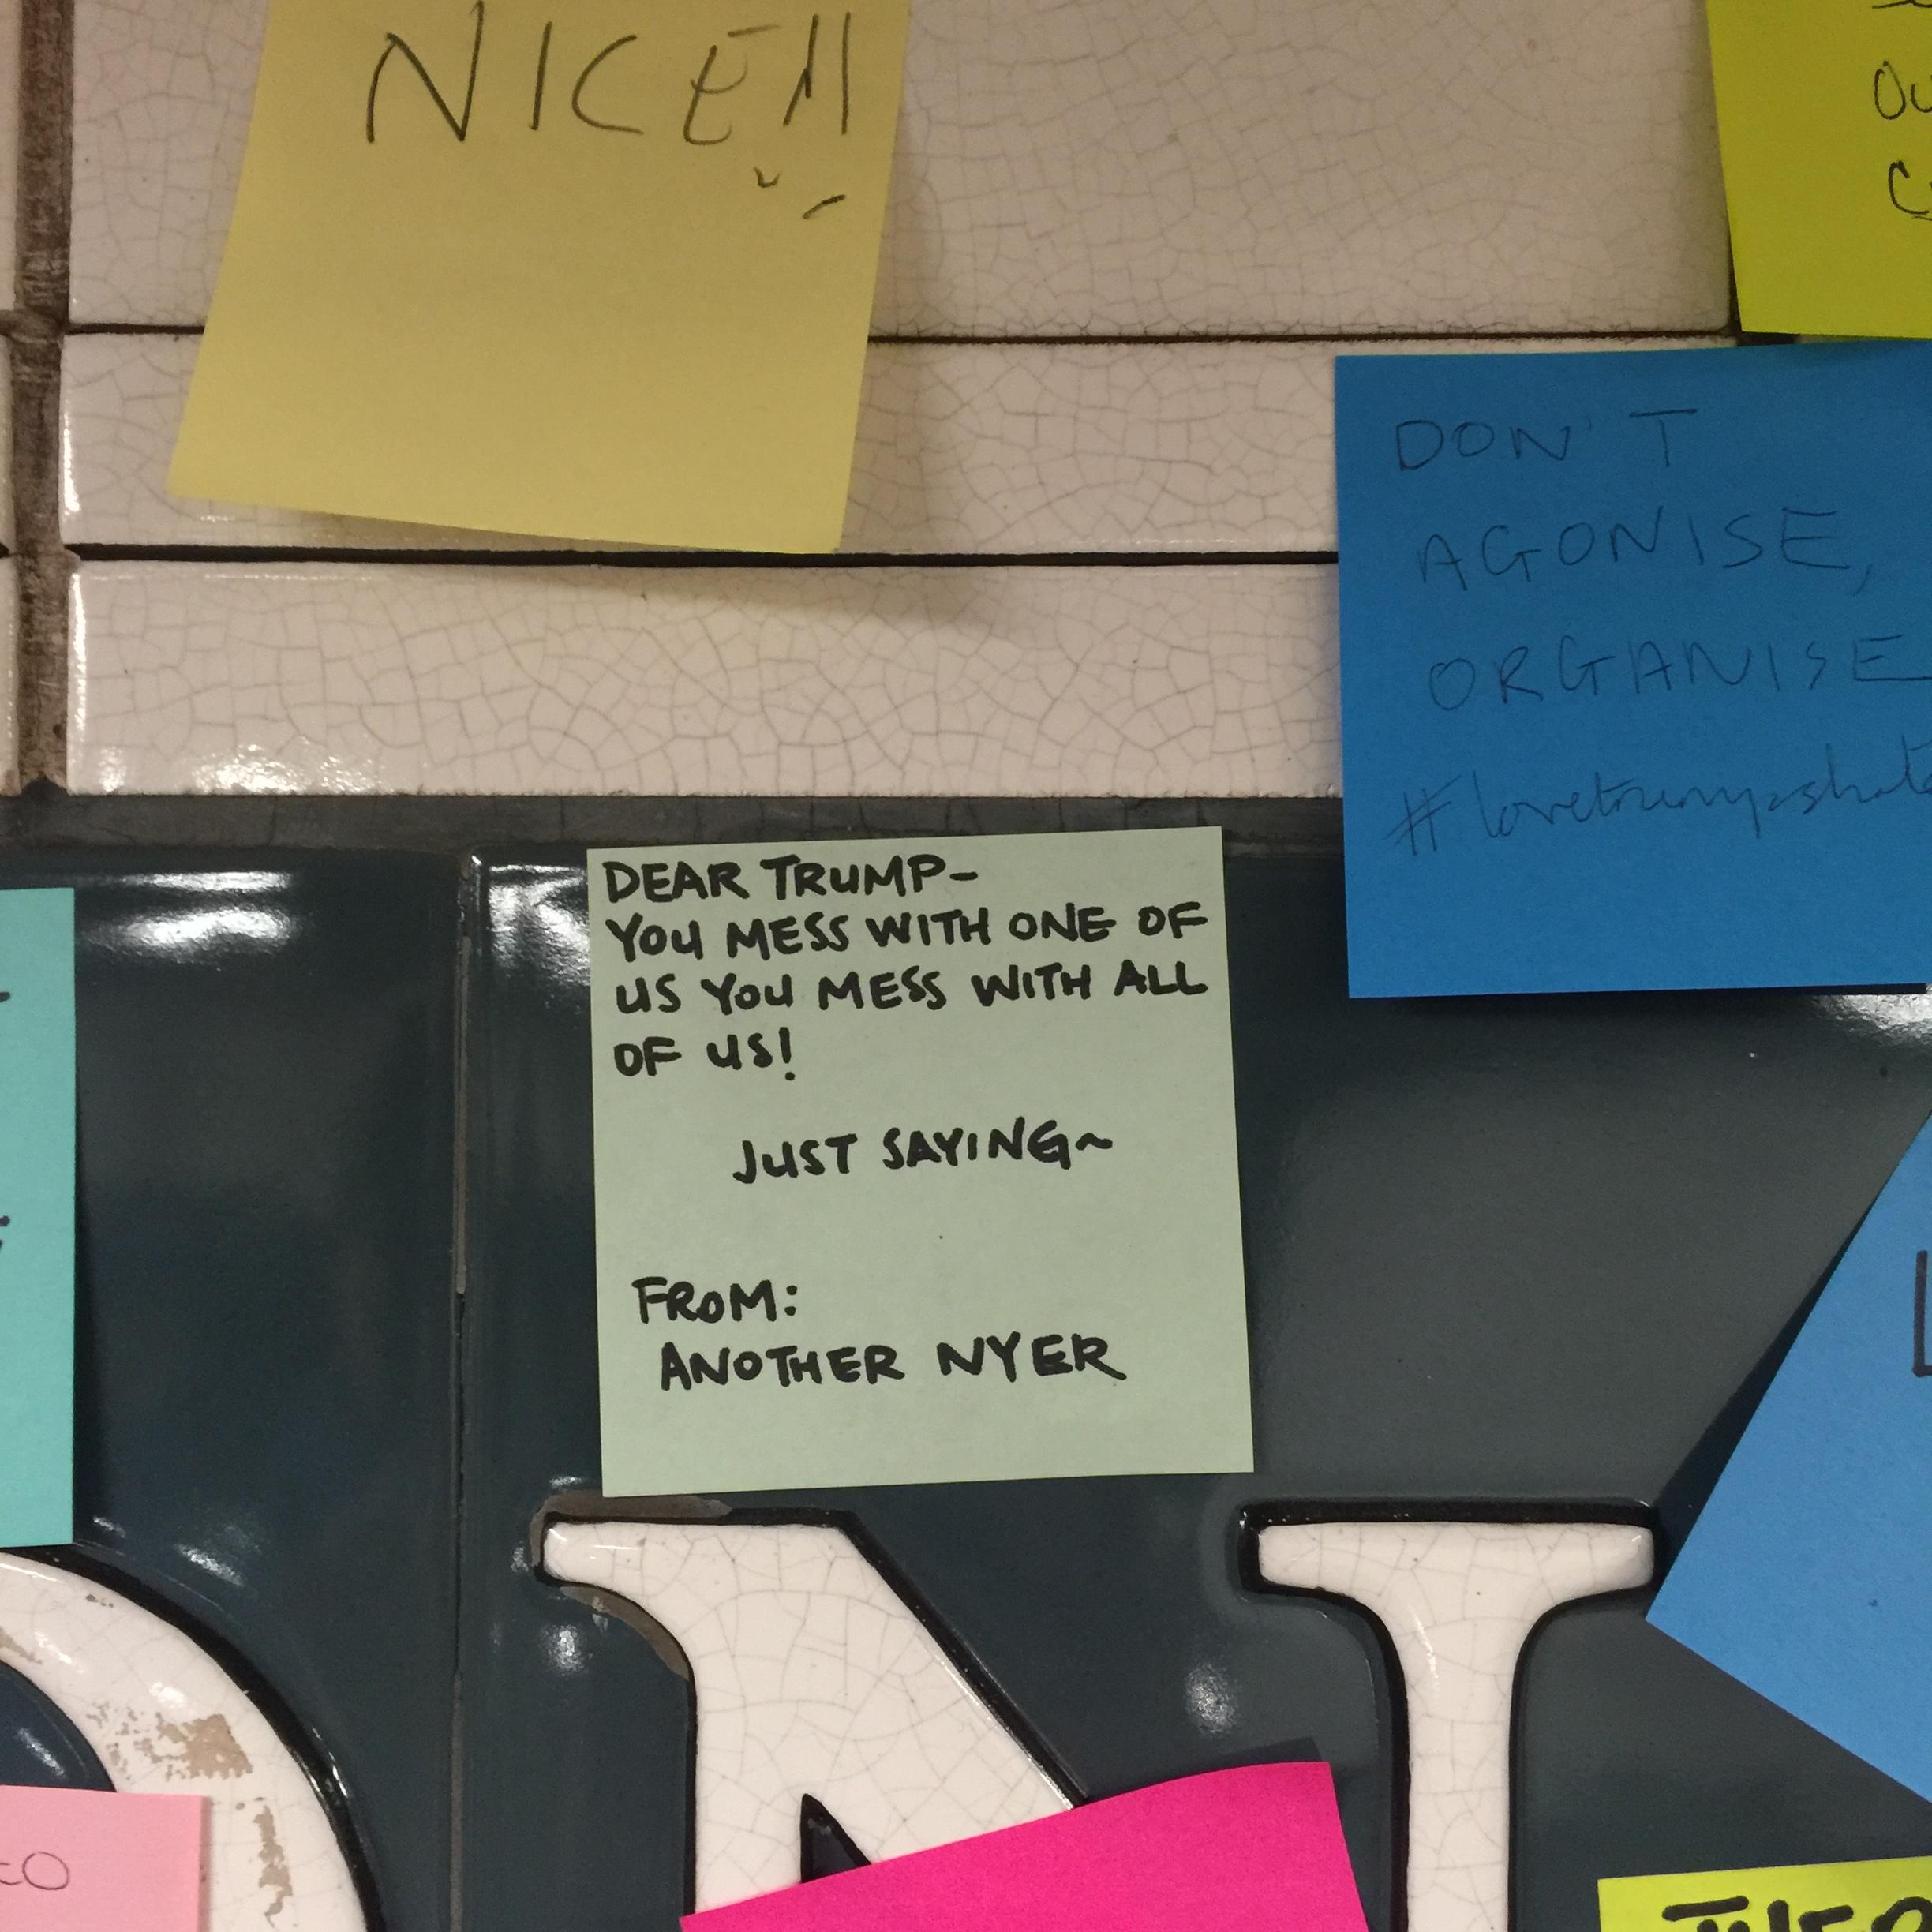 NICE!!
DON'T
AGONISE,
ORGANISE
#lovetrumpshate
DEAR TRUMP-
YOU MESS WITH ONE OF
US YOU MESS WITH ALL
OF US!
JUST SAYING~
FROM:
ANOTHER NYER
N